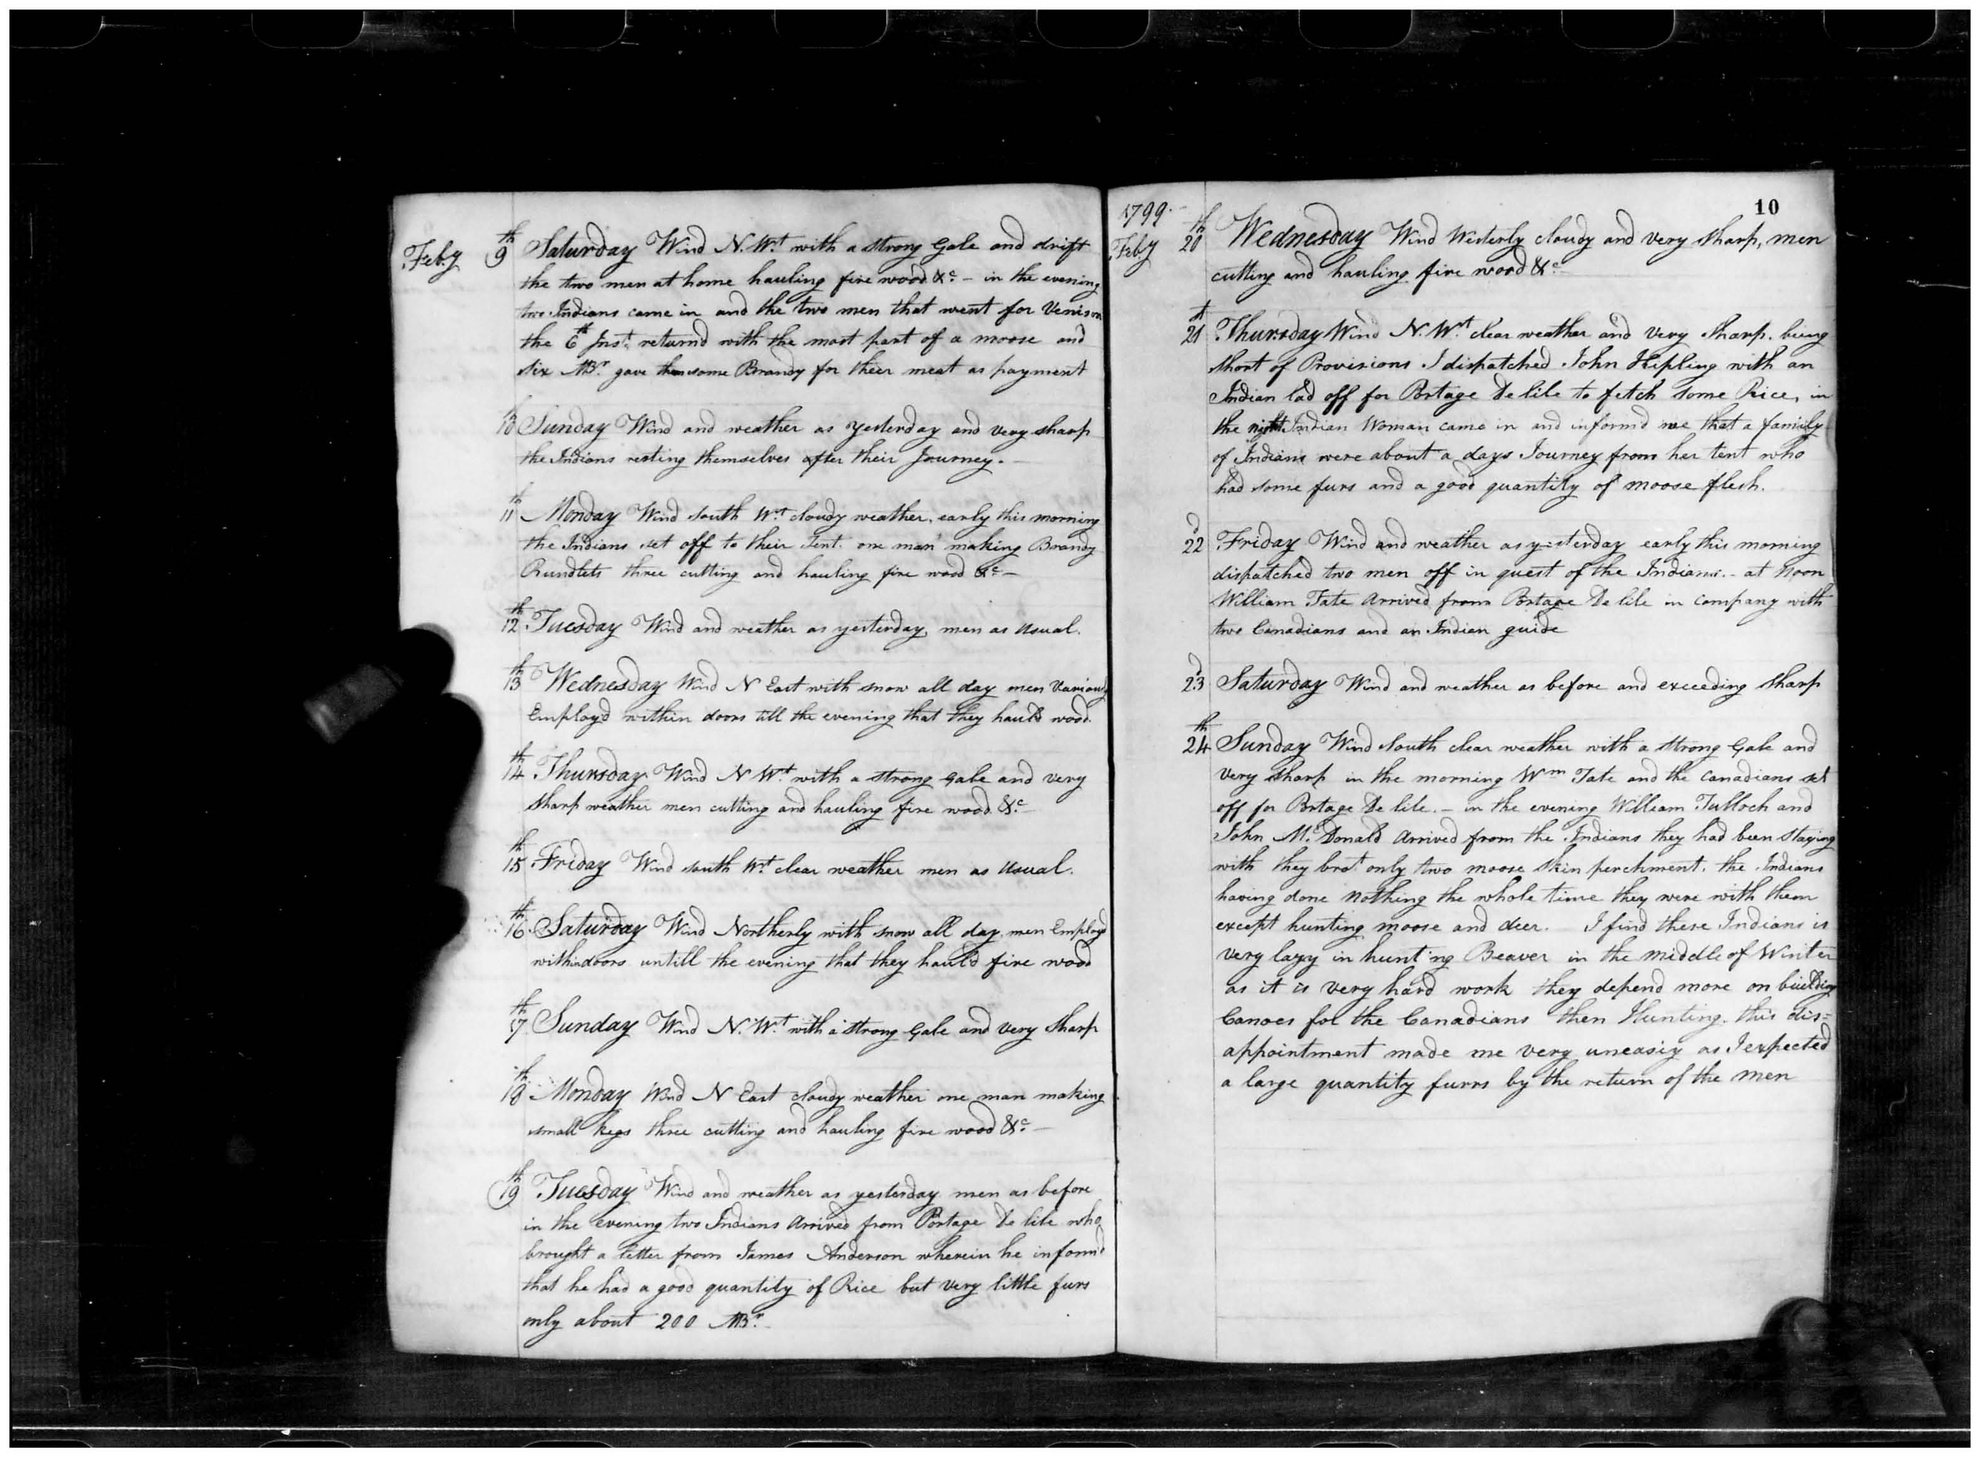 Feby 9th Saturday Wind N. Wt with a strong Gale and drift
the two men at home hauling fire wood &c - in the evening
two Indians came in and the two men that went for Venison
the 6th Inst. returnd with the most part of a moose and
six MBr gave them some Brandy for their meat as payment
10 Sunday Wind and weather as yesterday and very sharp
the Indians resting themselves after their Journey. -
11th Monday Wind South Wt cloudy weather. early this morning
the Indians set off to their Tent. one man making Brandy
Rundlets three cutting and hauling fire wood &c -
12th Tuesday Wind and weather as yesterday, men as Usual.
13th Wednesday Wind N East with snow all day men Variously
Employd within doors till the evening that they hauld wood.
14th Thursday Wind N Wt with a strong gale and very
sharp weather men cutting and hauling fire wood &c -
15th Friday Wind south Wt clear weather men as Usual.
16th Saturday Wind Northerly with snow all day, men Employd
withindoors untill the evening that they hauld fire wood
17th Sunday Wind N. Wt with a strong Gale and very Sharp
18th Monday Wind N East cloudy weather one man making
small kegs three cutting and hauling fire wood &c -
19th Tuesday Wind and weather as yesterday men as before
in the evening two Indians Arrived from Portage De lile who
brought a letter from James Anderson wherein he informd
that he had a good quantity of Rice but very little furs
only about 200 MBr.
10
1799.
Feby 20th Wednesday Wind Westerly cloudy and very Sharp, men
cutting and hauling fire wood &c -
21st Thursday Wind N. Wt clear weather and very Sharp. being
short of Provisions I dispatched John Kipling with an
Indian lad off for Portage De lile to fetch some Rice, in
the night Indian Woman came in and informd me that a family
of Indians were about a days Journey from her tent who
had some furs and a good quantity of moose flesh.
22d Friday Wind and weather as yesterday early this morning
dispatched two men off in quest of the Indians. - at Noon
William Tate Arrived from Portage De lile in company with
two Canadians and an Indian guide
23d Saturday Wind and weather as before and exceeding Sharp
24th Sunday Wind South clear weather with a strong Gale and
very sharp in the morning Wm Tate and the Canadians set
off for Portage De lile. - in the evening William Tulloch and
John McDonald Arrived from the Indians they had been staying
with they brot only two moose skin perchment. the Indians
having done nothing the whole time they were with them
except hunting moose and deer. I find these Indians is
very lazy in hunting Beaver in the middle of Winter
as it is very hard work they depend more on building
Canoes for the Canadians then Hunting. this dis=
appointment made me very uneasiy as I expected
a large quantity furrs by the return of the men